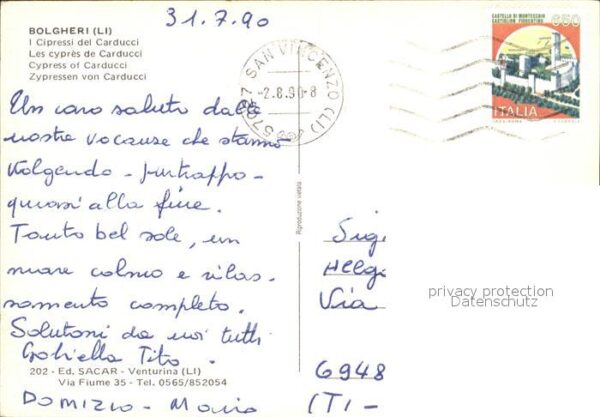 31.7.90
BOLGHERI (LI)
I Cipressi del Carducci
Les cyprès de Carducci
Cypress of Carducci
Zypressen von Carducci
57027 SAN VINCENZO (LI)
-2.8.90-8
CASTELLO DI MONTECCHIO
CASTIGLION FIORENTINO
650
ITALIA
Un caro saluto dalle
nostre vacanze che stanno
volgendo - purtroppo -
quasi alla fine.
Tanto bel sole, un
mare calmo e rilas-
samento completo.
Salutoni da noi tutti
Gabriella Tito
Domizio - Maria
202 - Ed. SACAR - Venturina (LI)
Via Fiume 35 - Tel. 0565/852054
Riproduzione vietata
Sig
Helg
Via
6948
(TI-
privacy protection
Datenschutz